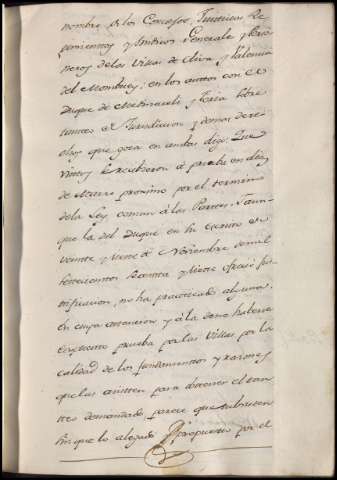 nombre de los Concejos, Justicias Re
gimientos y Sindicos Generales y Perso
neros de las Villas de Oliva, y Valencia
del Mombuey; en los autos con el
Duque de Medinaceli, y Feria sobre
tanteo de Jurisdicion y demas dere
chos que goza en ambas digo: Que
vistos se recibieron à prueba en diez
de Marzo proximo por el termino
de la Ley comun à las Partes, y aun
que la del Duque en su escrito de
veinte y siete de Noviembre de mil
setecientos setenta y siete ofreció jus
tificacion, no ha practicado alguna,
en cuya atencion y à la de no haberse
prueba por las Villas por la
calidad de los fundamentos y razones
que las asisten para obtener el tan
teo demandado, parece que
sin que lo alegado y propuesto por el